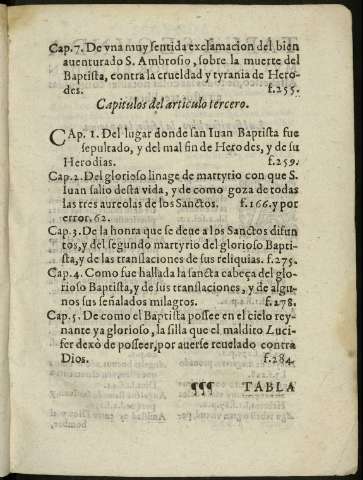 Cap. 7. De vna muy sentida exclamacion del bien
auenturado S. Ambrosio, sobre la muerte del
Baptista, contra la crueldad y tyrania de Hero-
des. f.255.
Capitulos del articulo tercero.
CAp. 1. Del lugar donde san Iuan Baptista fue
sepultado, y del mal fin de Herodes, y de su
Herodias. f.259.
Cap. 2. Del glorioso linage de martyrio con que S.
Iuan salio desta vida, y de como goza de todas
las tres aureolas de los Sanctos. f.166. y por
error. 62.
Cap. 3. De la honra que se deue a los Sanctos difun
tos, y del segundo martyrio del glorioso Bapti-
sta, y de las translaciones de sus reliquias. f.275.
Cap. 4. Como fue hallada la sancta cabeça del glo-
rioso Baptista, y de sus translaciones, y de algu-
nos sus señalados milagros. f.278.
Cap. 5. De como el Baptista possee en el cielo rey-
nante ya glorioso, la silla que el maldito Luci-
fer dexò de posseer, por auerse reuelado contra
Dios. f.284.
¶¶¶ TABLA